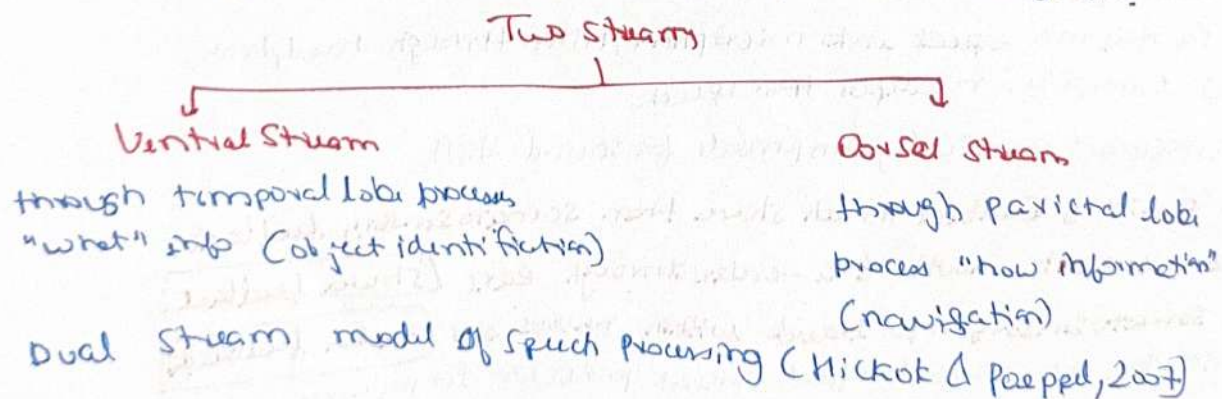 Two streams
Ventral Stream
Dorsal stream
through temporal lobe process
"what" info (object identifiction)
through parietal lobe
process "how information"
(navigation)
Dual stream model of speech processing (Hickok & poeppel, 2007)